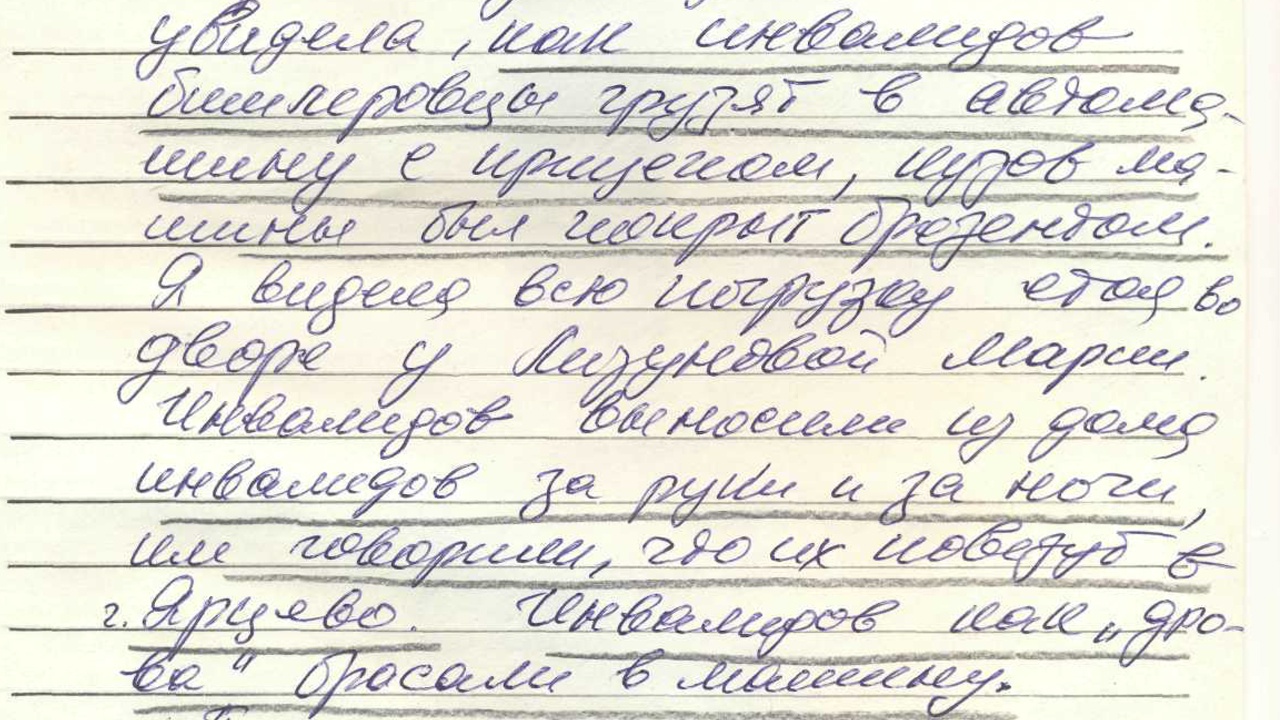 увидела, как инвалидов
гитлеровцы грузят в автома-
шину с прицепом, кузов ма-
шины был покрыт брезентом.
Я видела всю погрузку стоя во
дворе у Лизуновой Марии.
Инвалидов выносили из дома
инвалидов за руки и за ноги,
им говорили, что их повезут в
г. Ярцево. Инвалидов как „дро-
ва" бросали в машину.